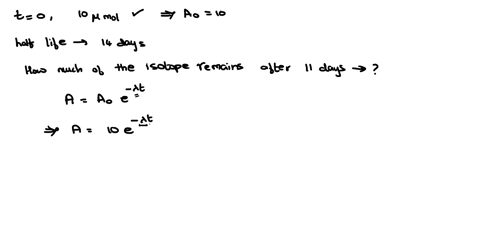 t=0, 10 μmol ✓ ⇒ A₀ = 10
half life → 14 days
How much of the isotope remains after 11 days → ?
A = A₀ e^{-λt}
⇒ A = 10 e^{-λt}